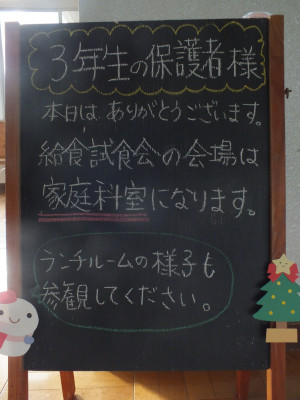 3年生の保護者様
本日は、ありがとうございます。
給食試食会の会場は
家庭科室になります。
ランチルームの様子も
参観してください。